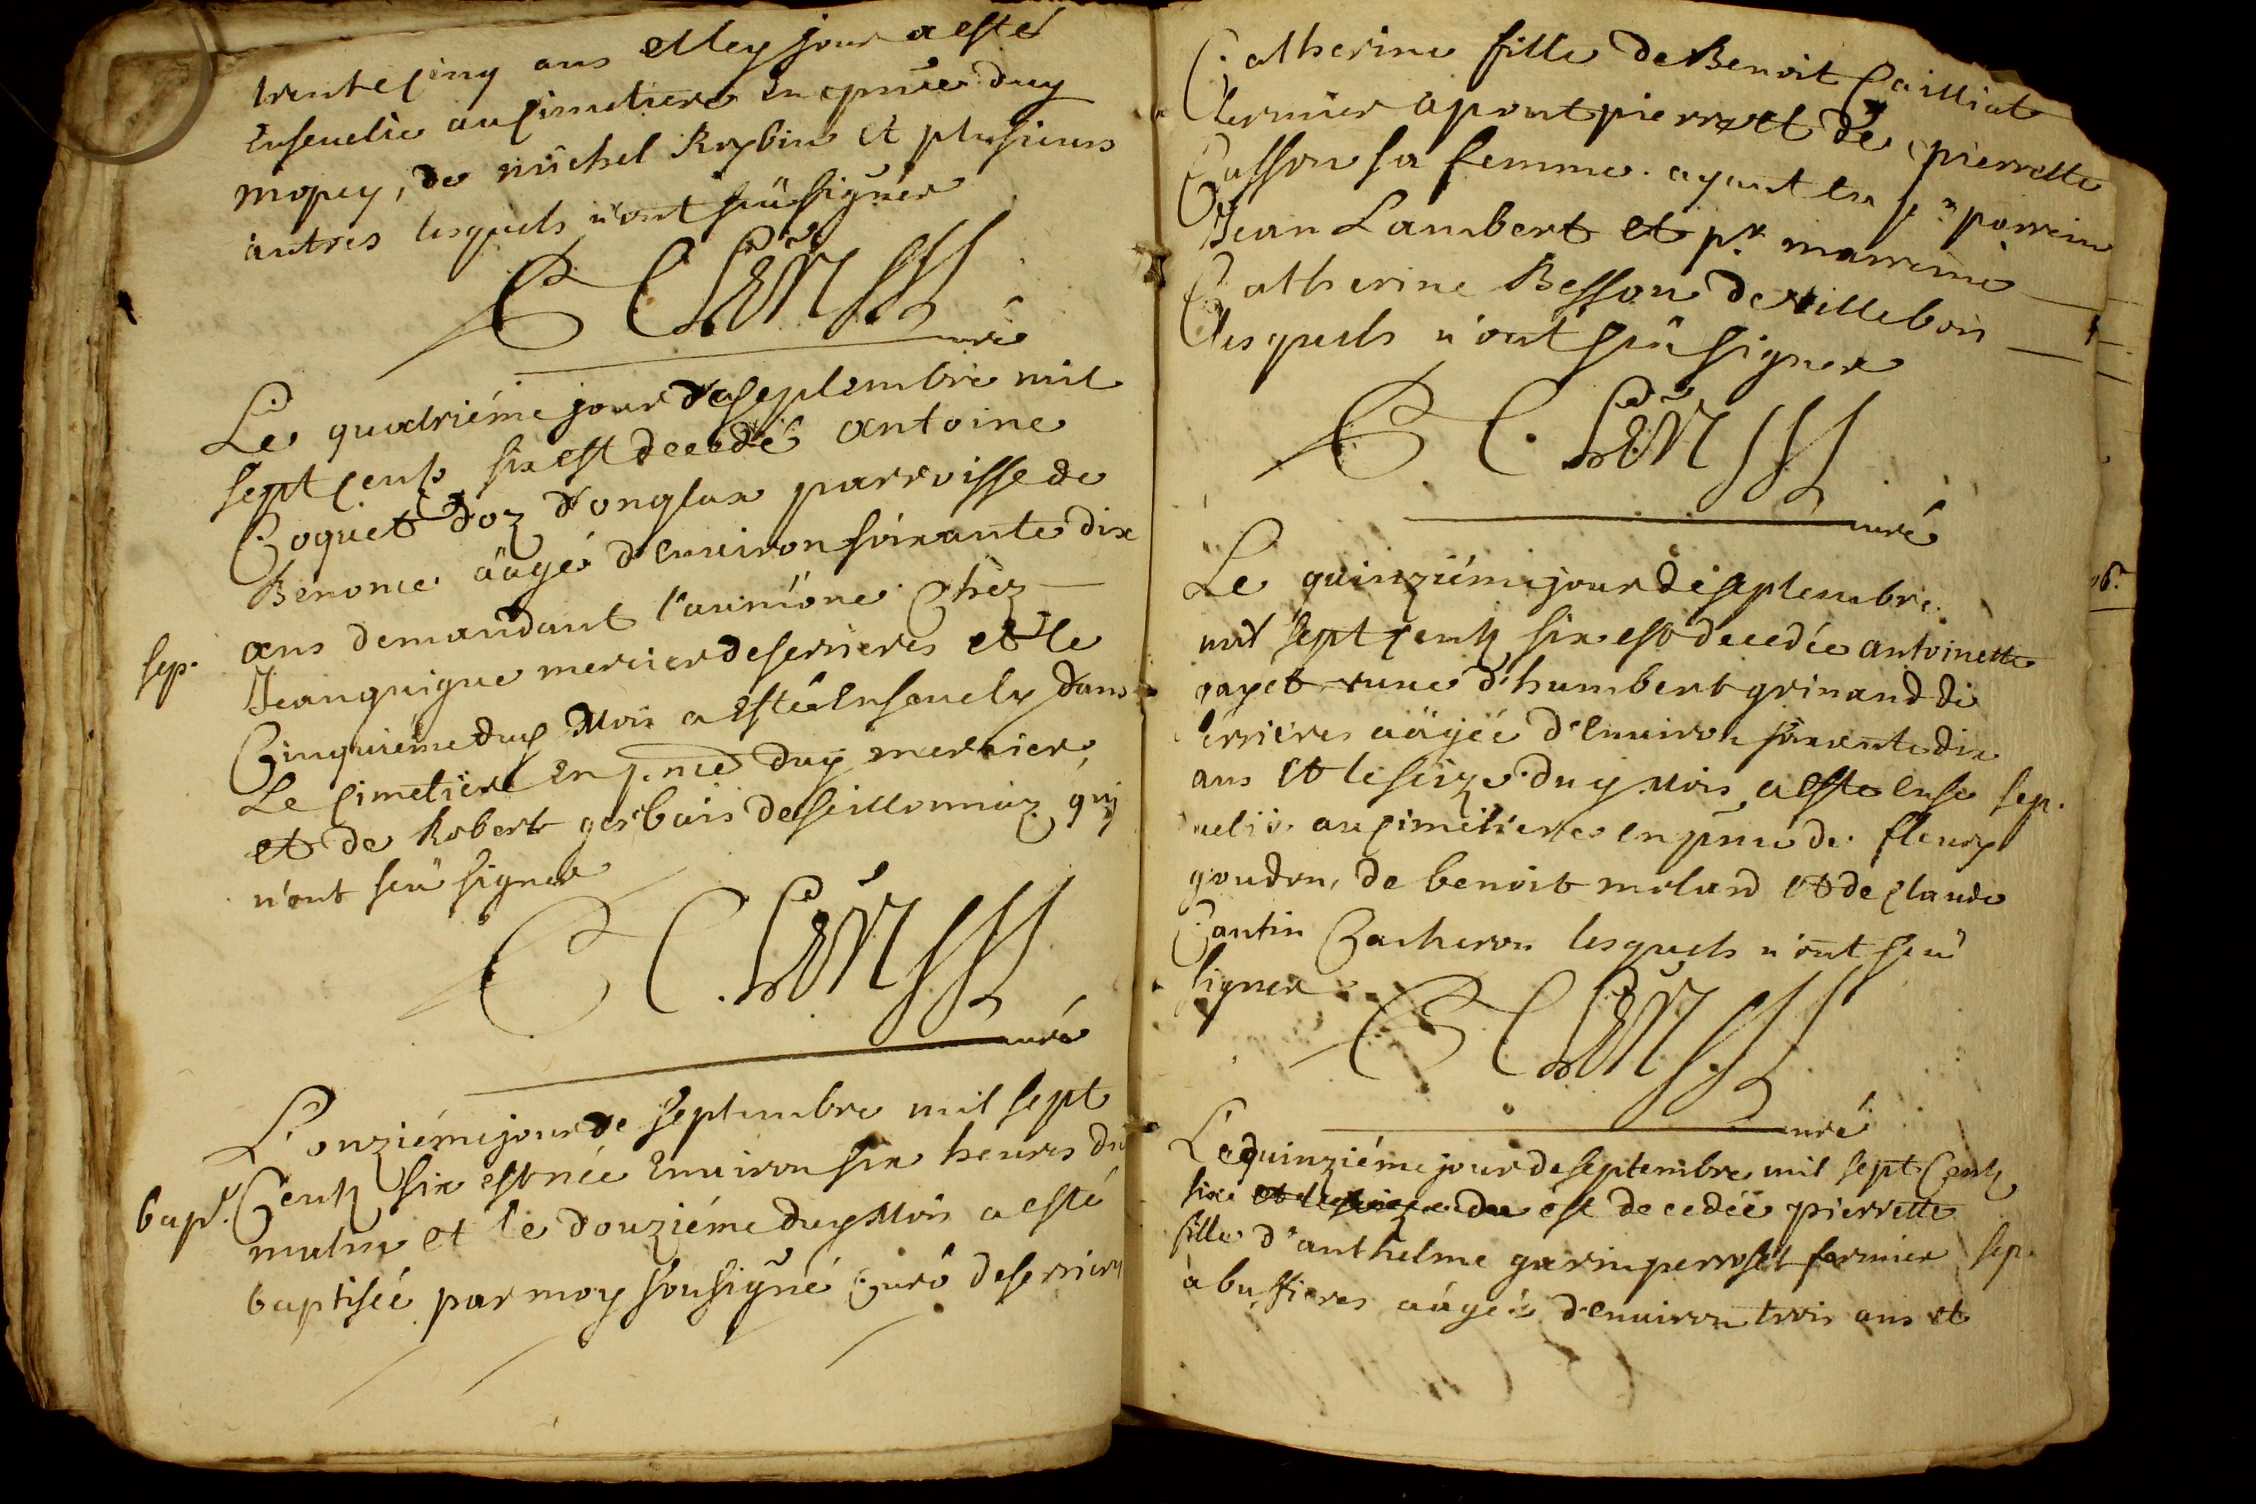 trente cinq ans et led jour a esté
ensevelie au cimetiere en pnce dud
mopey, de michel Roybin et plusieurs
autres lesquels n'ont sçû signer
curé
Le quatriéme jour de septembre mil
sept cents six est decedé antoine
Coquet doz d'onglax parroisse de
Benonce âagé d'environ soixante dix
ans demandant l'aumône Chez
sep.
Jean guigue mercier de serrieres et le
Cinquiéme dud Mois a esté ensevely dans
Le cimetiere en p.nce dud mercier,
et de Robert gerbais de seillonnaz qui
n'ont sceu signer
curé
L'onziéme jour de septembre mil sept
bapt. Cents six est née environ six heures du
matin et le douziéme dud Mois a esté
baptisée par moy sousigné Curé de serrieres
Catherine fille de Benoit Cailliat
fermier a pont pierre et de pierrette
Casson sa femme. ayant eu pr parrein
Jean Lambert et pr. marreine
Catherine Besson de villebois
lesquels n'ont sçû signer
curé
Le quinziéme jour de septembre
mil sept cents six est decedée antoinette
payet vuve d'humbert grinand de
serrieres aâgée d'environ soixante dix
ans et le seize dud Mois a esté ense
sep.
velie au cimetiere en pnce de fleury
goudon, de benoit molard et de claude
Cantin Vacheron lesquels n'ont sceu
signer
curé
Le quinziéme jour de septembre mil sept Cents
six est decedée pierrette
fille d'anthelme garin perroset fermier
sep.
à buffieres aâgée d'environ trois ans et